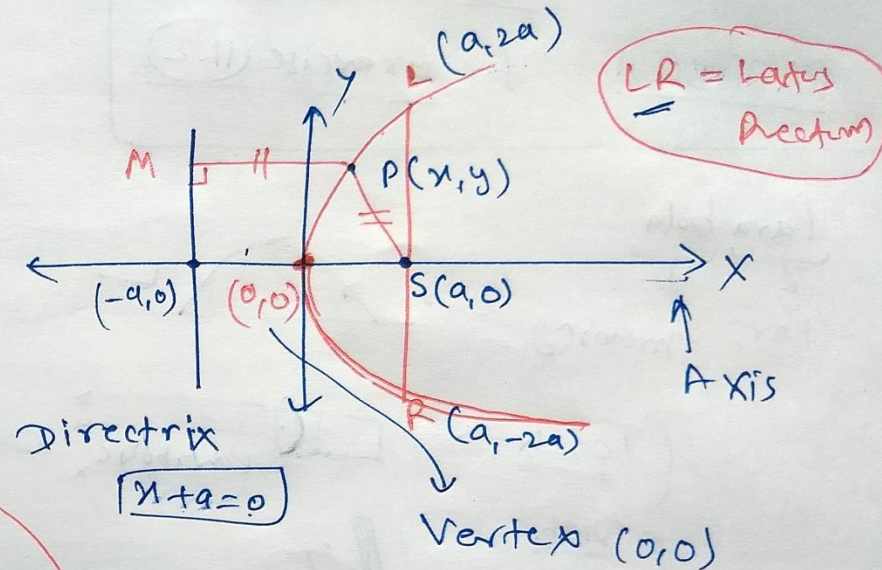 L (a, 2a)
Y
LR = Latus
Rectum
M
P(x, y)
(-a, 0)
(0, 0)
S(a, 0)
X
Axis
R (a, -2a)
Directrix
x + a = 0
Vertex (0, 0)